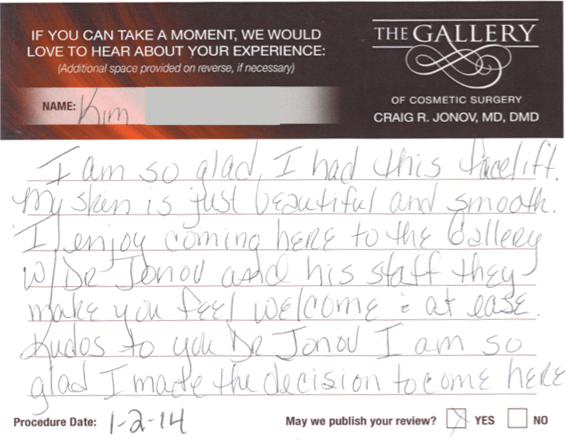 IF YOU CAN TAKE A MOMENT, WE WOULD
LOVE TO HEAR ABOUT YOUR EXPERIENCE:
(Additional space provided on reverse, if necessary)
NAME: Kim
THE GALLERY
OF COSMETIC SURGERY
CRAIG R. JONOV, MD, DMD
I am so glad I had this facelift.
My skin is just beautiful and smooth.
I enjoy coming here to the Gallery
w/ Dr Jonov and his staff they
make you feel welcome & at ease.
Kudos to you Dr Jonov I am so
glad I made the decision to come here
Procedure Date: 1-2-14
May we publish your review? YES NO